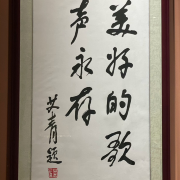 美好的歌
声永存
艾青题